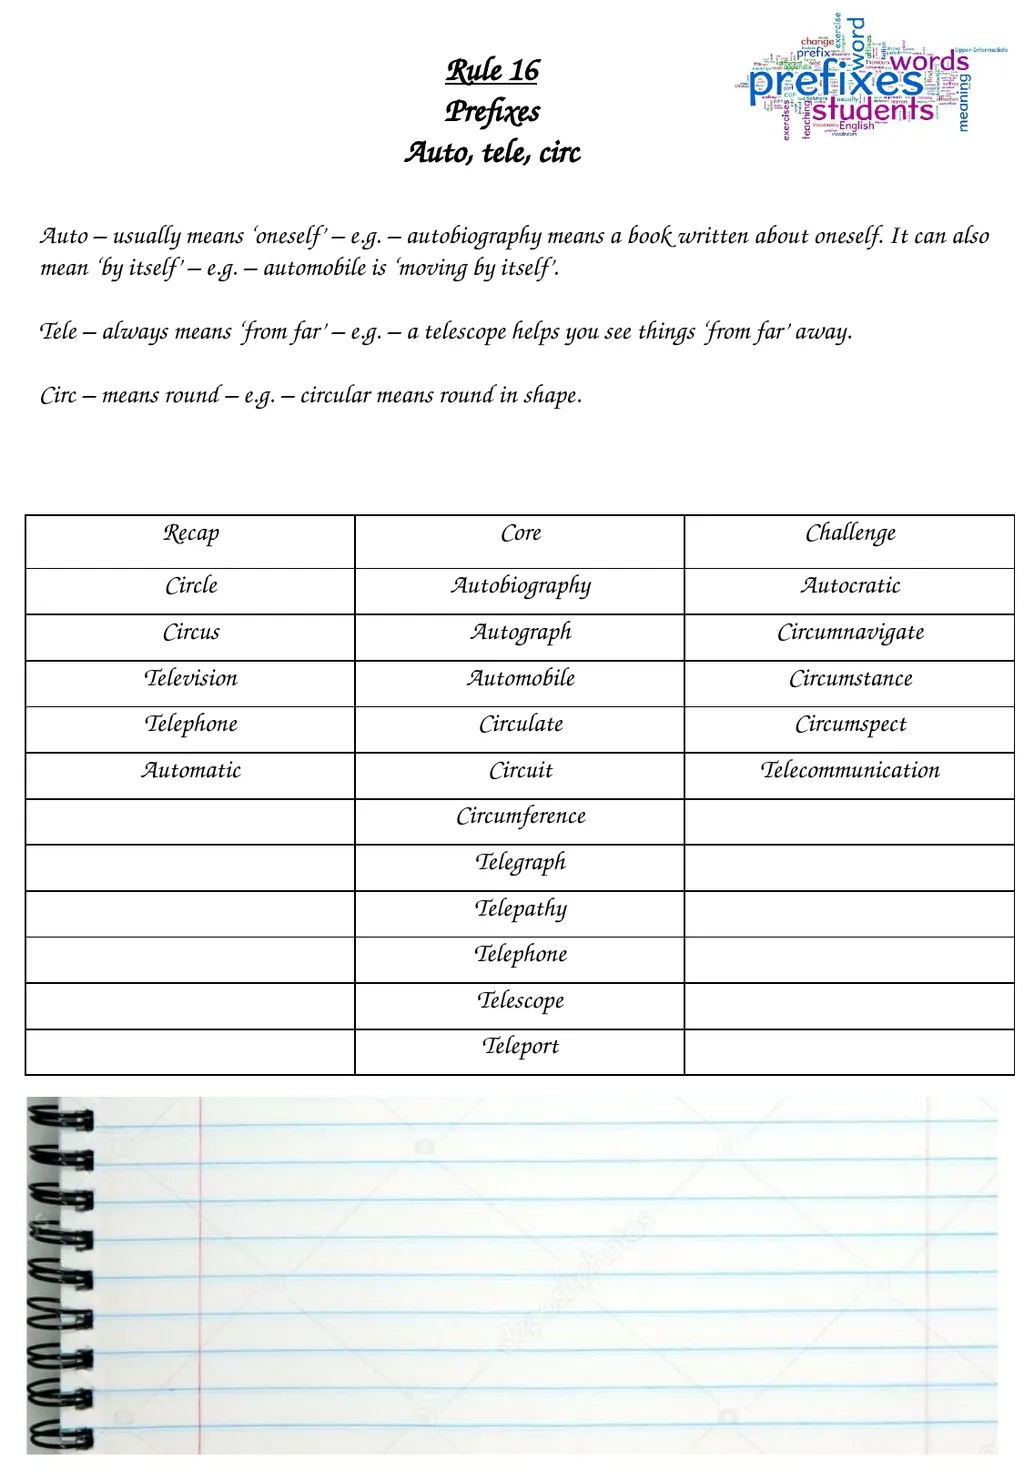 Rule 16
Prefixes
Auto, tele, circ
change
exercise
word
prefix
words
prefixes
students
meaning
Upper-Intermediate
exercises
teaching
English
usually
Vocabulary
Auto – usually means ‘oneself’ – e.g. – autobiography means a book written about oneself. It can also
mean ‘by itself’ – e.g. – automobile is ‘moving by itself’.
Tele – always means ‘from far’ – e.g. – a telescope helps you see things ‘from far’ away.
Circ – means round – e.g. – circular means round in shape.
Recap Core Challenge
Circle Autobiography Autocratic
Circus Autograph Circumnavigate
Television Automobile Circumstance
Telephone Circulate Circumspect
Automatic Circuit Telecommunication
Circumference
Telegraph
Telepathy
Telephone
Telescope
Teleport
depositphotos